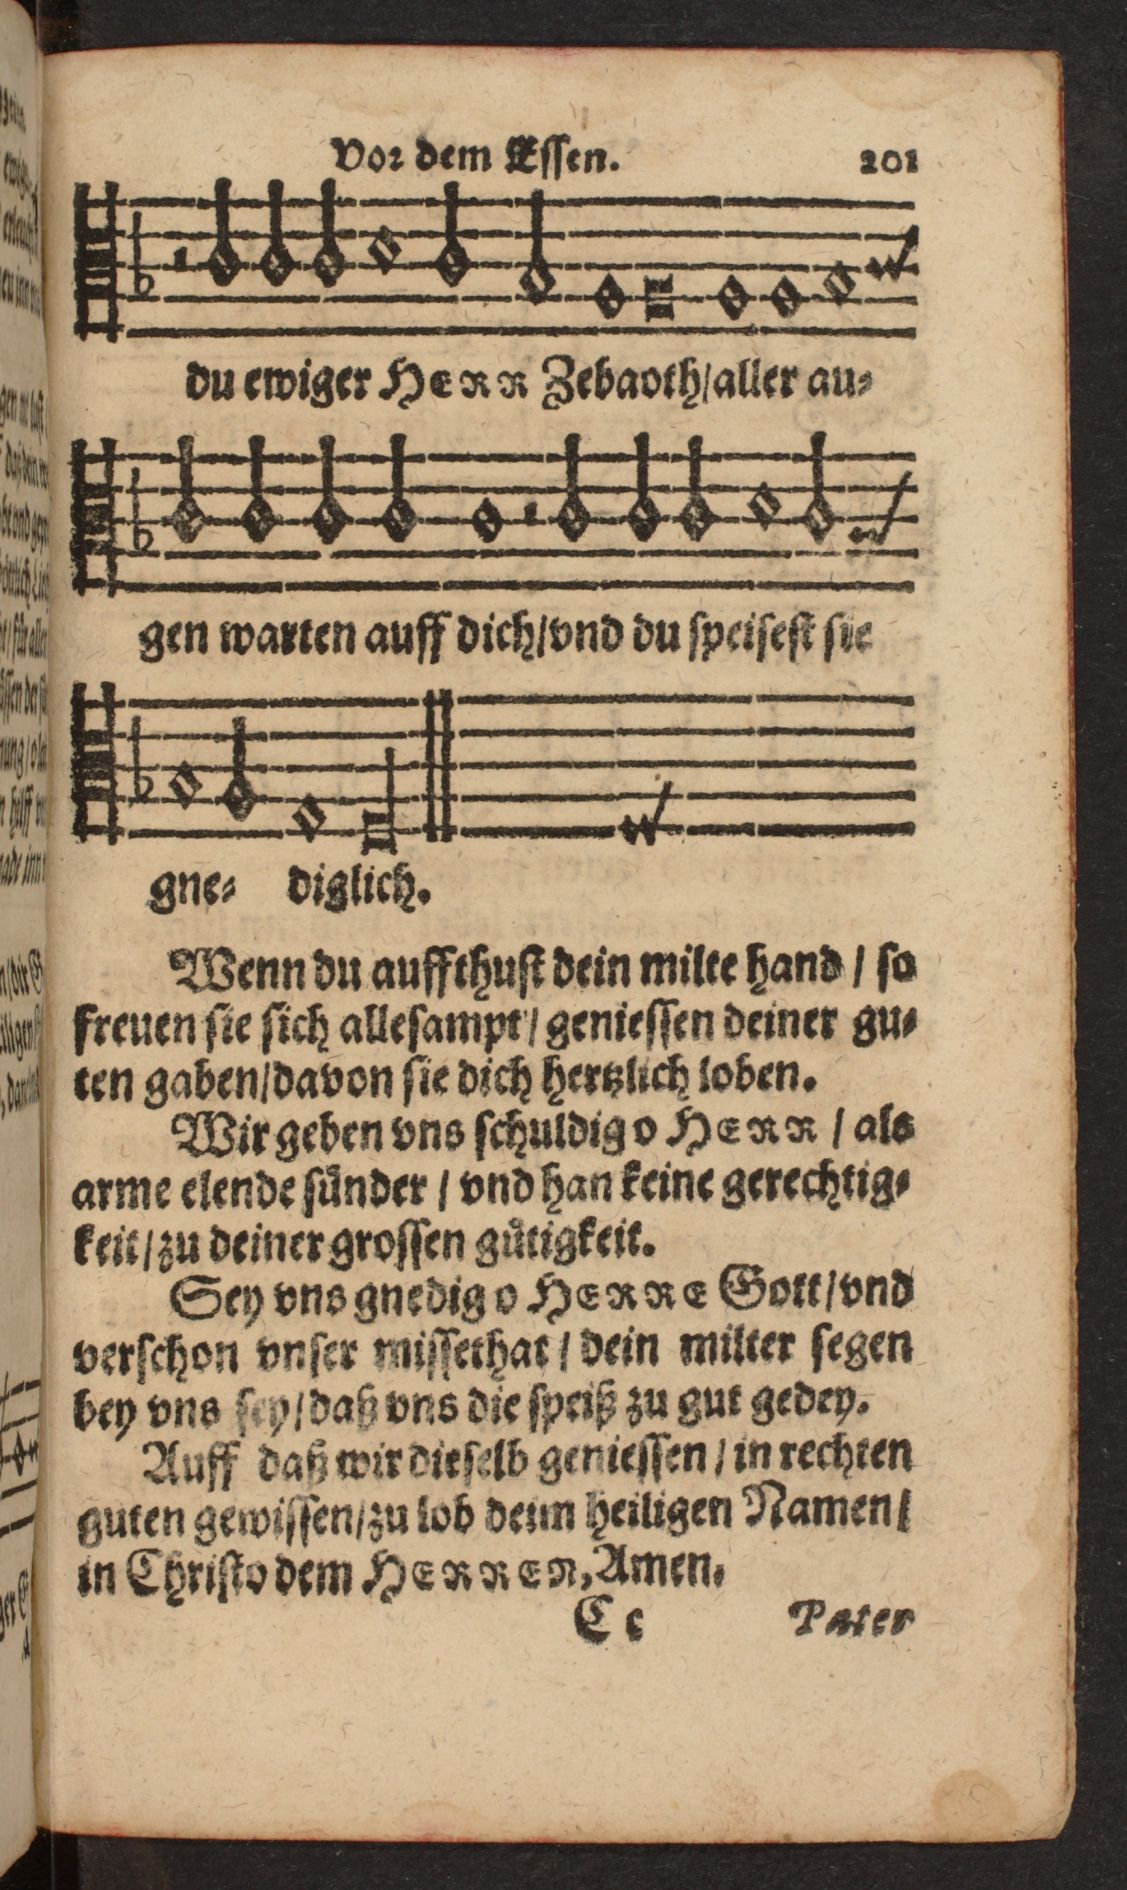 Vor dem Essen. 201
du ewiger HERR Zebaoth/aller au⸗
gen warten auff dich/vnd du speisest sie
gne⸗ diglich.
Wenn du auffthust dein milte hand / so
freuen sie sich allesampt / geniessen deiner gu⸗
ten gaben/davon sie dich hertzlich loben.
Wir geben vns schuldig o HERR / als
arme elende sünder / vnd han keine gerechtig⸗
keit/zu deiner grossen gütigkeit.
Sey vns gnedig o HERRE Gott/vnd
verschon vnser missethat / dein milter segen
bey vns sey/daß vns die speiß zu gut gedey.
Auff daß wir dieselb geniessen / in rechten
guten gewissen/zu lob deim heiligen Namen/
in Christo dem HERREN, Amen.
Cc Pater